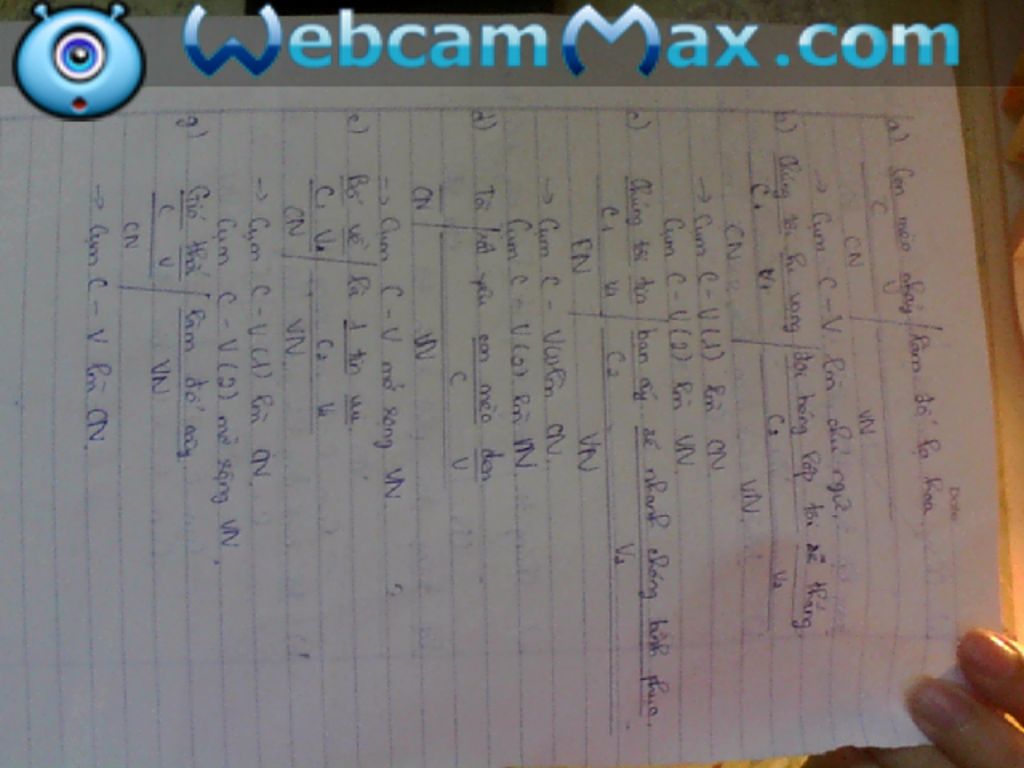 WebcamMax.com
a) Con mèo chạy / làm đổ lọ hoa
C
CN VN
→ Cụm C - V làm chủ ngữ.
b) Chúng tôi hi vọng / đội bóng lớp tôi sẽ thắng.
C1 V1 C2 V2
CN VN
→ Cụm C - V (1) làm CN
Cụm C - V (2) làm VN
c) Chúng tôi tin bạn ấy sẽ nhanh chóng hạnh phúc.
C1 V1 C2 V2
VN
→ Cụm C - V làm CN.
Cụm C - V (2) làm
d) Tôi / rất yêu con mèo đen
C V
CN VN
→ Cụm C - V mở rộng VN
e) Bố về / là 1 tin vui.
C1 V1 C2 V2
CN VN
→ Cụm C - V (1) làm CN.
Cụm C - V (2) mở rộng VN.
g) Gió thổi / làm đổ cây.
C V
CN VN
→ Cụm C - V làm CN.